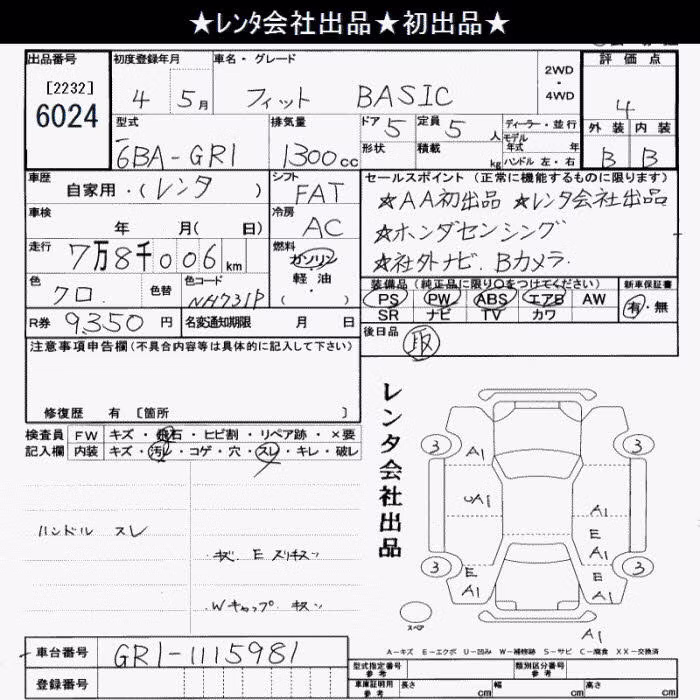 ★レンタ会社出品★初出品★
出品番号
[2232]
6024
初度登録年月
4 5月
車名・グレード
フィット BASIC
2WD
・
4WD
評価点
4
型式
6BA-GR1
排気量
1300cc
ドア 5
定員 5人
形状
積載 kg
ディーラー・並行
モデル年式 年
ハンドル 左・右
外装 内装
B B
車歴
自家用・(レンタ)
シフト
FAT
車検
年 月( 日)
冷房
AC
走行
7万8千006km
燃料
ガソリン
軽油
・( )
色
クロ.
色替
色コード
NH731P
R券 9350円
名変通知期限 月 日
セールスポイント(正常に機能するものに限ります)
★AA初出品 ★レンタ会社出品
★ホンダセンシング
★社外ナビ.Bカメラ.
装備品(純正品に限り○をつけてください)
新車保証書
PS PW ABS エアB AW
SR ナビ TV カワ
有・無
後日品
取
注意事項申告欄(不具合内容等は具体的に記入して下さい)
修復歴 有 [箇所 ]
検査員
記入欄
FW キズ・飛石・ヒビ割・リペア跡・×要
内装 キズ・汚レ・コゲ・穴・スレ・キレ・破レ
ハンドル スレ
キズ. E スリキズ
Wキャップ キズ
レンタ会社出品
3 3
A1
A1
A1
E
A1
3 3
E
A1
E
A1
A1
スペア
A-キズ E-エクボ U-凹み W-補修跡 S-サビ C-腐食 XX-交換済
車台番号 GR1-1115981
登録番号
型式指定番号
参考
類別区分番号
参考
車庫証明用
参考
長さ cm 幅 cm 高さ cm